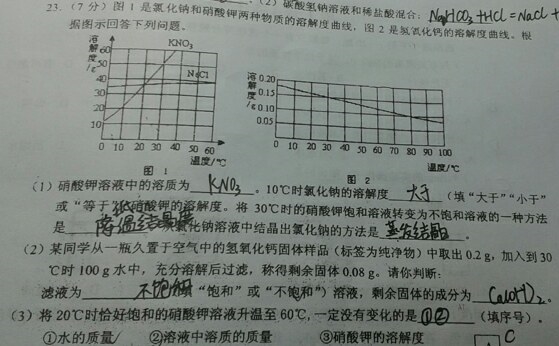 (2)碳酸氢钠溶液和稀盐酸混合: NaHCO3+HCl=NaCl+
23.(7分)图1是氯化钠和硝酸钾两种物质的溶解度曲线,图2是氢氧化钙的溶解度曲线。根
据图示回答下列问题。
溶解度/g
60
50
40
30
20
10
KNO3
NaCl
0 10 20 30 40 50 60
温度/℃
图 1
溶解度/g
0.20
0.15
0.10
0.05
0 10 20 30 40 50 60 70 80 90 100
温度/℃
图 2
(1)硝酸钾溶液中的溶质为 KNO3 。10℃时氯化钠的溶解度 大于 (填“大于”“小于”
或“等于”)硝酸钾的溶解度。将30℃时的硝酸钾饱和溶液转变为不饱和溶液的一种方法
是 氯化钠溶液中结晶出氯化钠的方法是 蒸发结晶 。
(2)某同学从一瓶久置于空气中的氢氧化钙固体样品(标签为纯净物)中取出0.2g,加入到30
℃时100g水中,充分溶解后过滤,称得剩余固体0.08g。请你判断:
滤液为 不饱和 “饱和”或“不饱和”)溶液,剩余固体的成分为 Ca(OH)2 。
(3)将20℃时恰好饱和的硝酸钾溶液升温至60℃,一定没有变化的是 ①② (填序号)。
①水的质量 ②溶液中溶质的质量 ③硝酸钾的溶解度
C